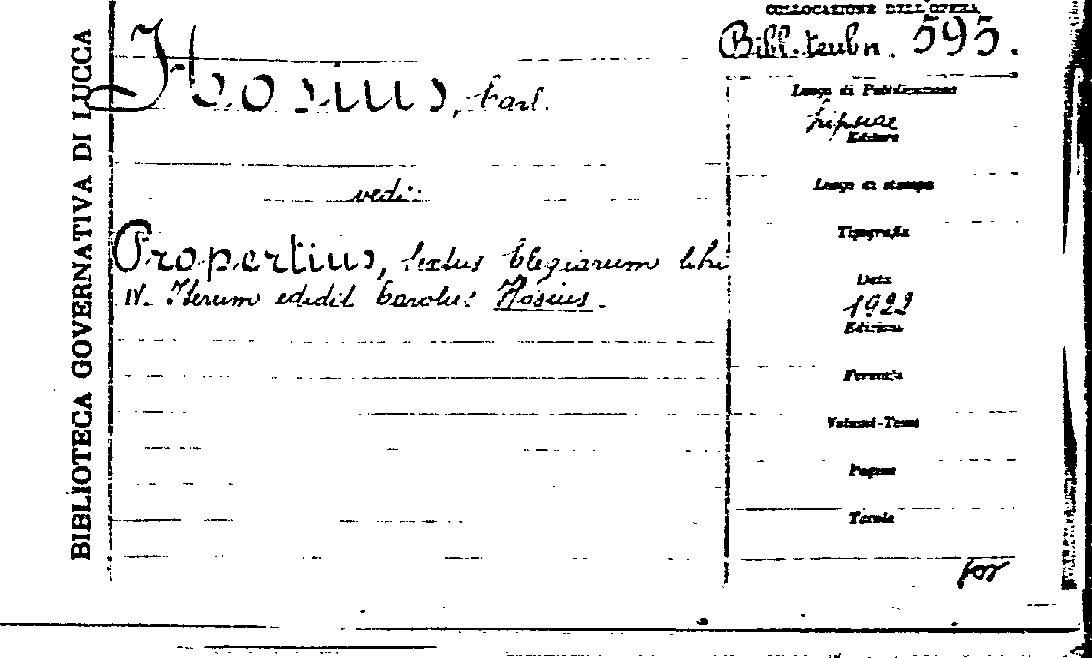 BIBLIOTECA GOVERNATIVA DI LUCCA
COLLOCAZIONE DELL'OPERA
Bibl. teubn. 595.
Hosius, Carl.
vedi:
Propertius, sextus Elegiarum libri
IV. Iterum edidit Carolus Hosius.
Luogo di Pubblicazione
Lipsiae
Editore
Luogo di stampa
Tipografia
Data
1922
Edizione
Formato
Volumi-Tomi
Pagine
Tavole